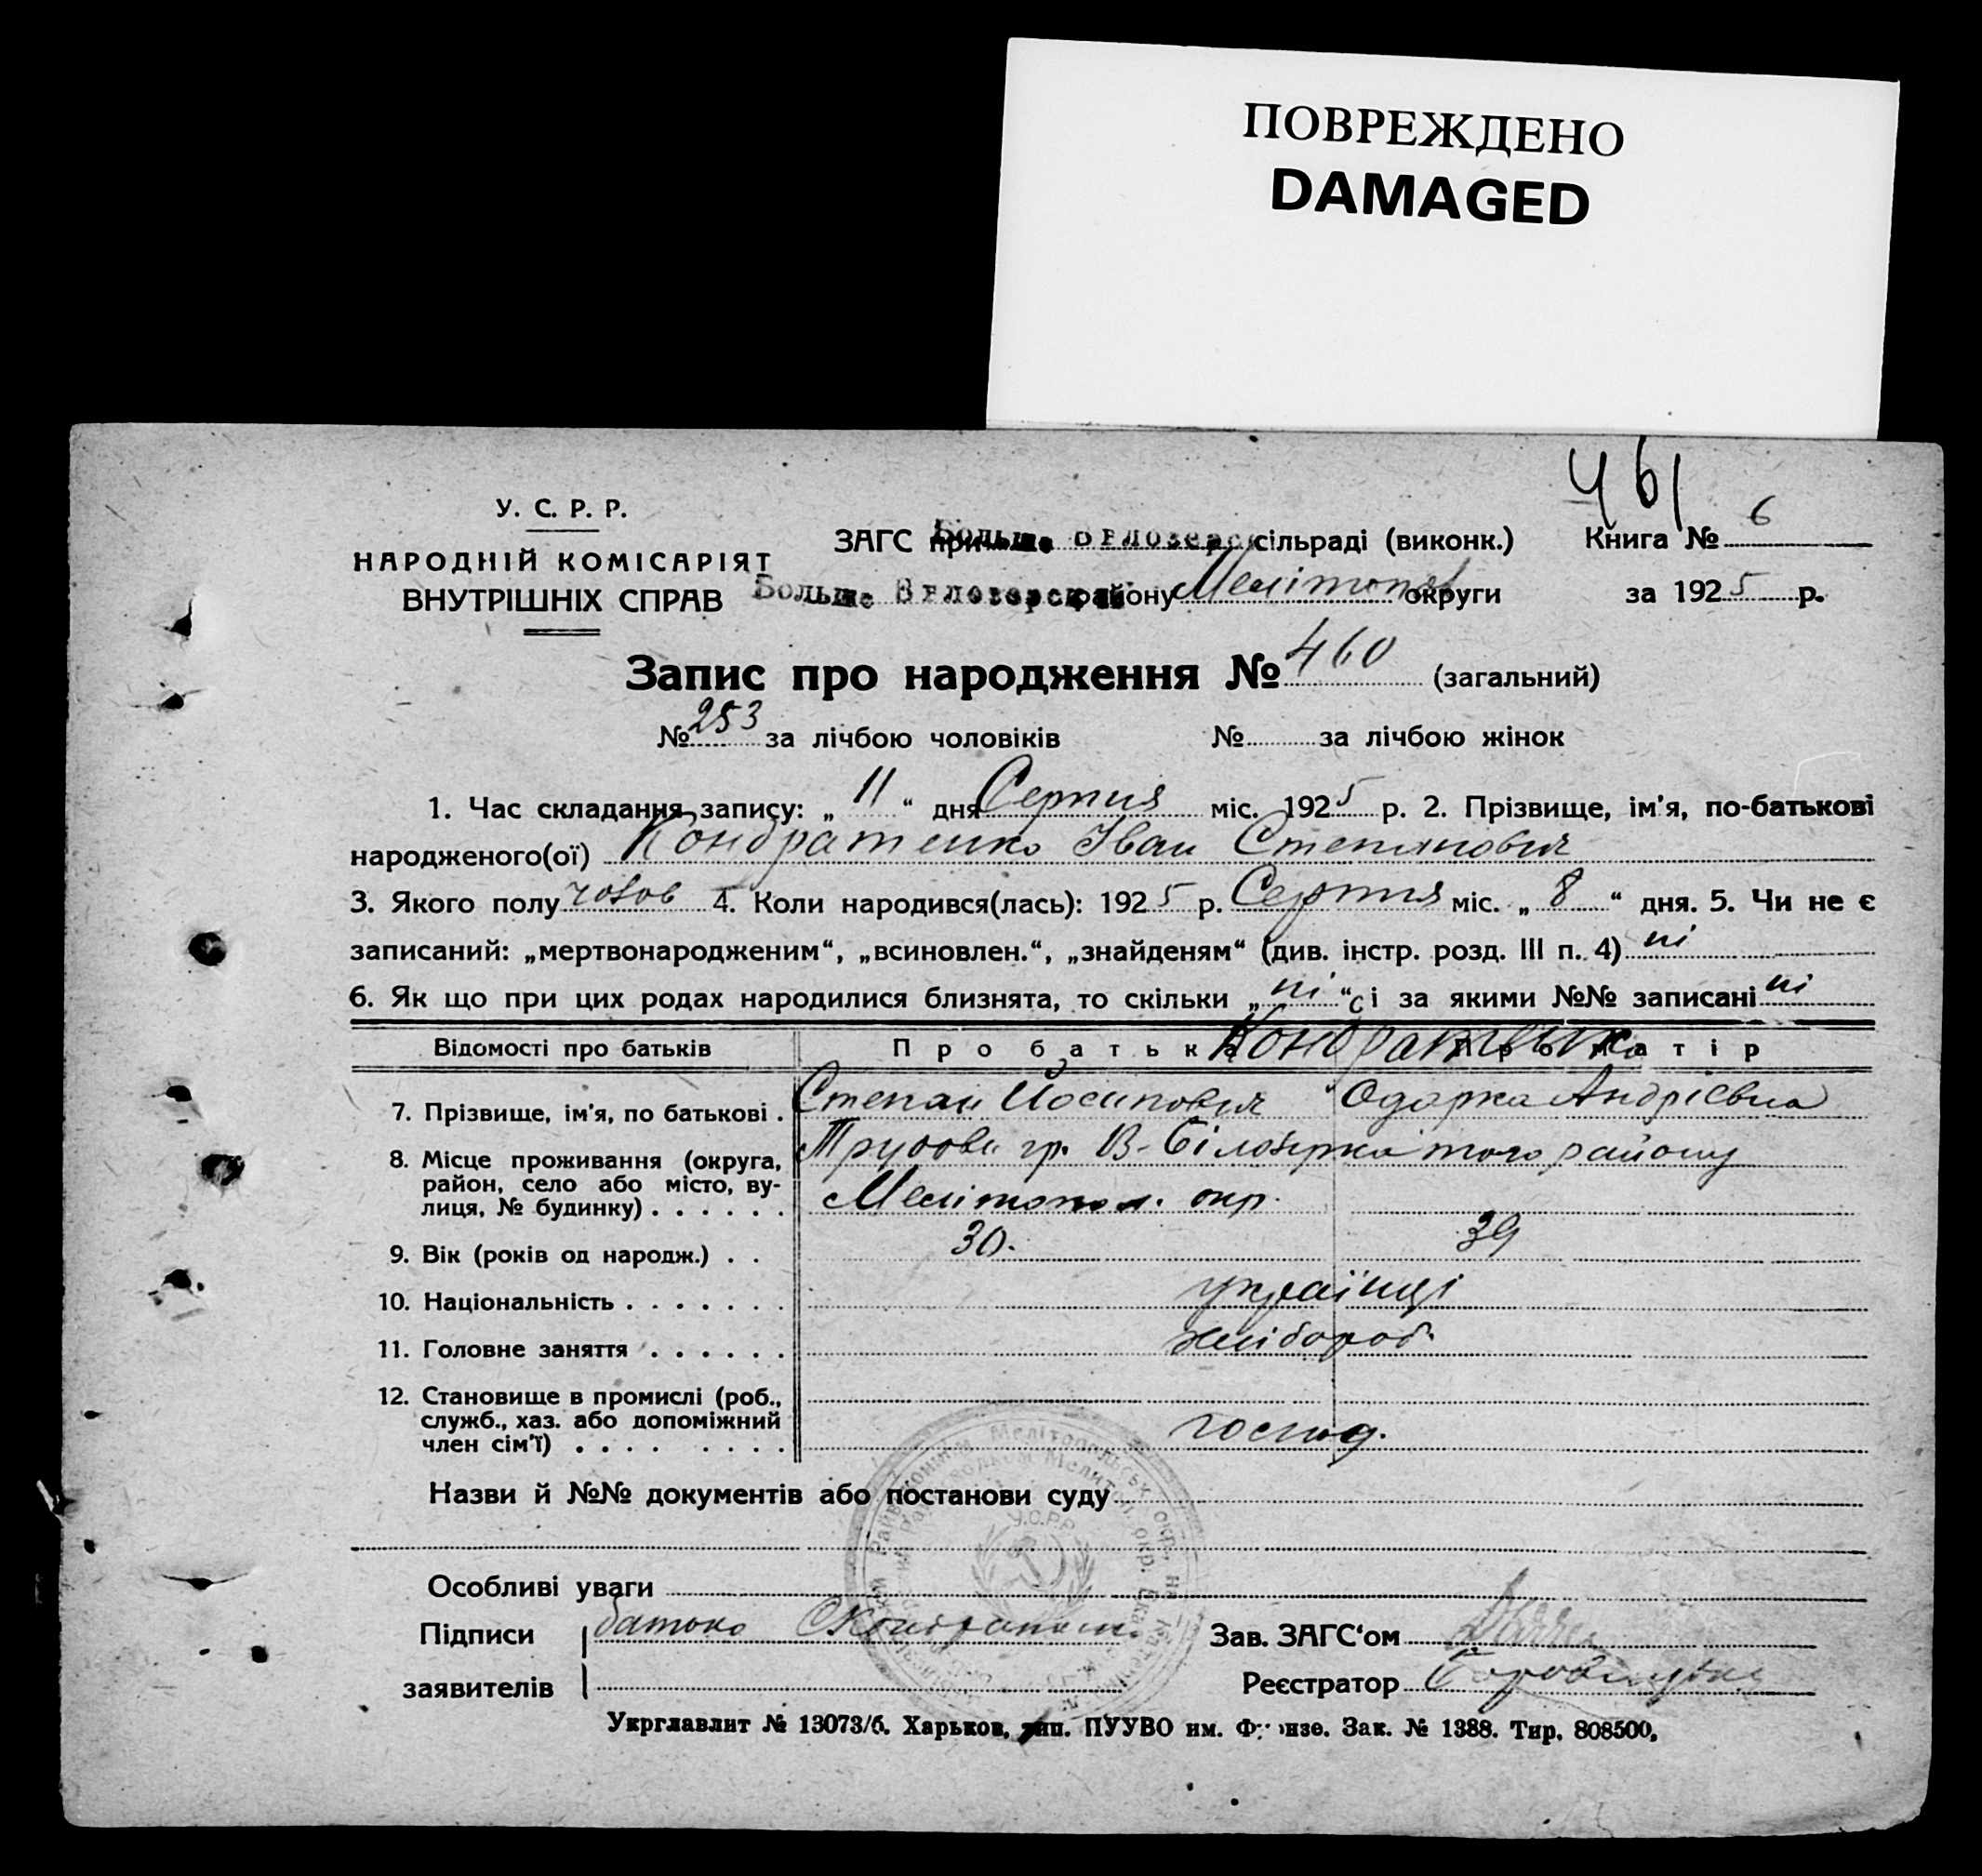 ПОВРЕЖДЕНО
DAMAGED
461
У. С. Р. Р.
НАРОДНІЙ КОМІСАРІЯТ
ВНУТРІШНІХ СПРАВ
ЗАГС при Больше Білозерс сільраді (виконк.) Книга № 6
Больше Білозерск району Мелітопол округи за 1925 р.
Запис про народження № 460 (загальний)
№ 253 за лічбою чоловіків № за лічбою жінок
1. Час складання запису: „ 11 “ дня Серпня міс. 1925 р. 2. Прізвище, ім'я, по-батькові
народженого(ої) Кондратенко Іван Степанович
3. Якого полу чолов 4. Коли народився(лась): 1925 р. Серпня міс. „ 8 “ дня. 5. Чи не є
записаний: „мертвонародженим“, „всиновлен.“, „знайденям“ (див. інстр. розд. III п. 4) ні
6. Як що при цих родах народилися близнята, то скільки „ ні “ і за якими №№ записані ні
Відомості про батьків Про батька Про матір
Кондратенко
7. Прізвище, ім'я, по батькові . Степан Йосипович Одарка Андріевна
8. Місце проживання (округа, район, село або місто, вулиця, № будинку) . . . . . . Трудова гр. В-Білозірка того району
Мелітопол. окр.
9. Вік (років од народж.) . . 30. 39
10. Національність . . . . . . . українці
11. Головне заняття . . . . . . хлібороб.
12. Становище в промислі (роб., служб., хаз. або допоміжний член сім'ї) . . . . . . . . господ.
Назви й №№ документів або постанови суду
У.С.Р.Р.
Особливі уваги
Підписи батько С Кондратен. Зав. ЗАГС'ом
заявителів Реєстратор
Укрглавлит № 13073/б. Харьков, тип. ПУУВО им. Фрунзе. Зак. № 1388. Тир. 808500.